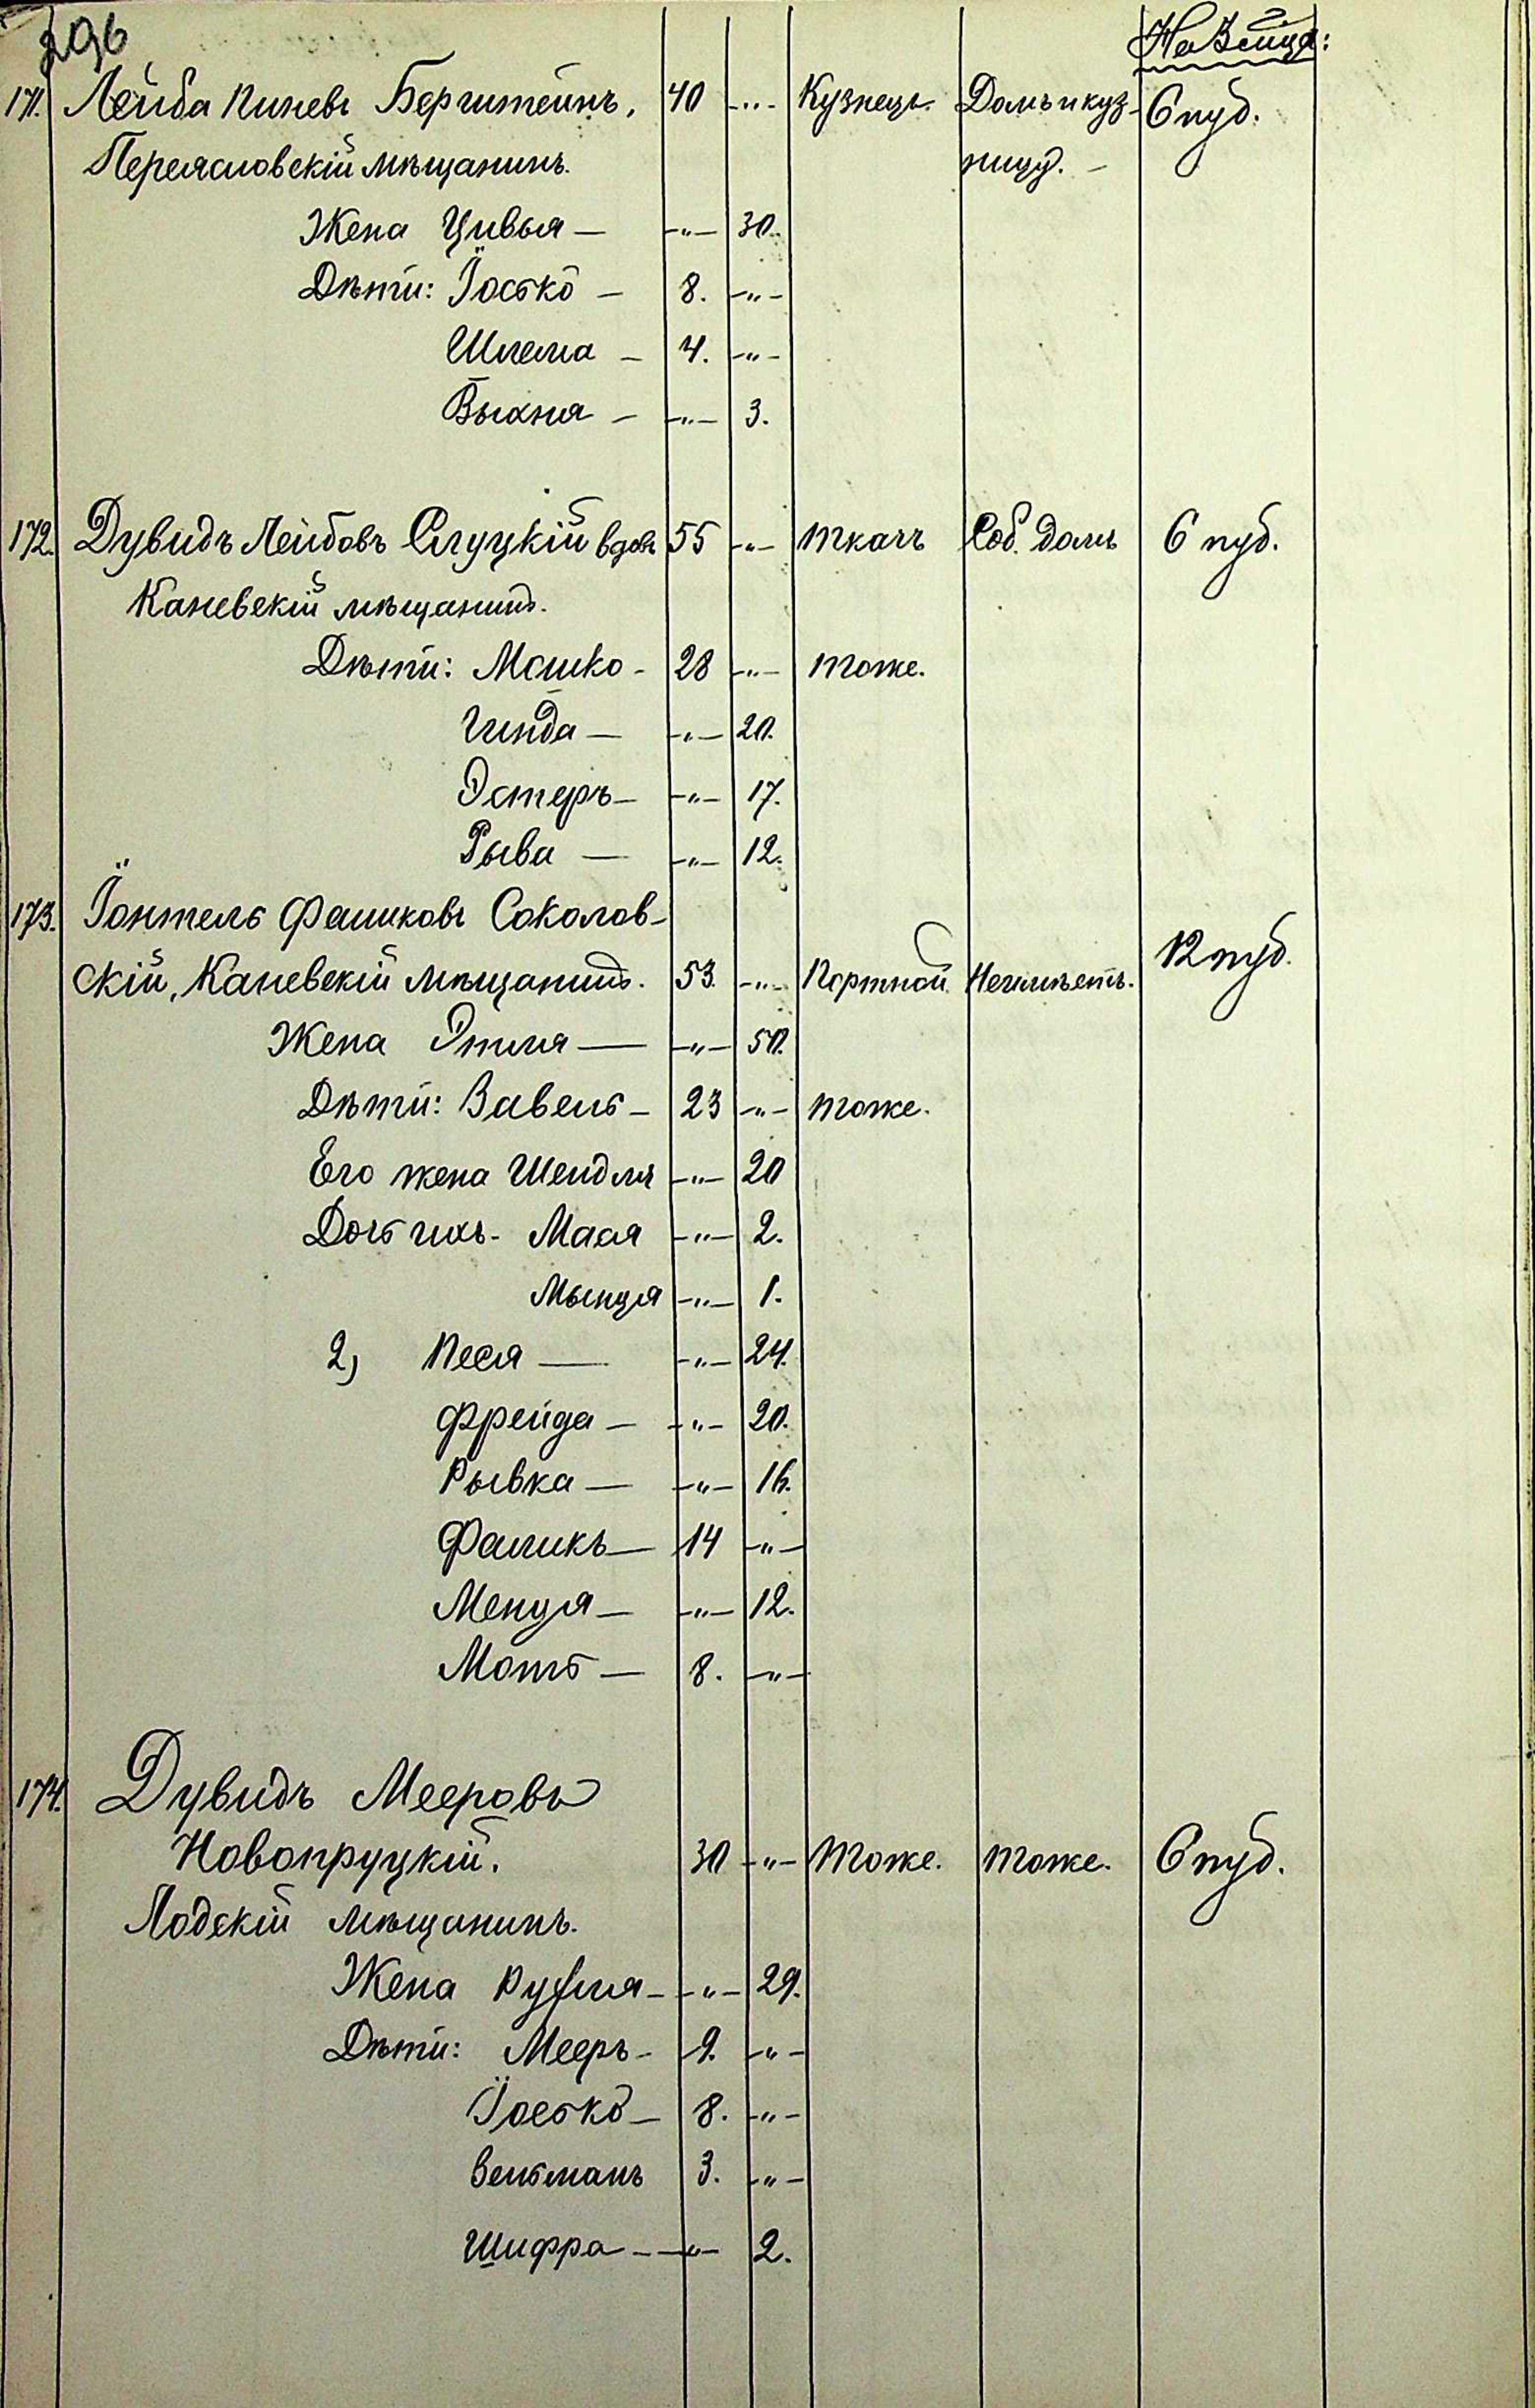 296
171. Лейба Пиневъ Бергштейнъ. 40 -"- Кузнецъ. Домъ и куз- 6 пуд.
Переяславскій мѣщанинъ. ницу. -
Жена Цивья — -"- 30.
Дѣти: Іосько — 8. -"-
Шлема — 4. -"-
Выхня — -"- 3.
172. Дувидъ Лейбовъ Слуцкій вдов. 55 -"- Ткачъ Соб. домъ 6 пуд.
Каневскій мѣщанинъ.
Дѣти: Мошко - 28 -"- тоже.
Гинда — -"- 20.
Эстеръ — -"- 17.
Рыва — -"- 12.
173. Іонтель Фаликовъ Соколов-
скій, Каневскій мѣщанинъ. 53. -"- Портной Неимѣетъ. 12 пуд.
Жена Этля — -"- 50.
Дѣти: Вавель — 23 -"- тоже.
Его жена Шейдля -"- 20
Дочь ихъ - Мася -"- 2.
Мынця -"- 1.
2) Песя — -"- 24.
Фрейда — -"- 20.
Рывка — -"- 16.
Фаликъ — 14 -"-
Менця — -"- 12.
Моть — 8. -"-
174. Дувидъ Мееровъ
Новопруцкій. 30 -"- Тоже. тоже. 6 пуд.
Лодскій мѣщанинъ.
Жена Рухля — -"- 29.
Дѣти: Мееръ — 9. -"-
Іосько — 8. -"-
Вельманъ 3. -"-
Шифра — -"- 2.